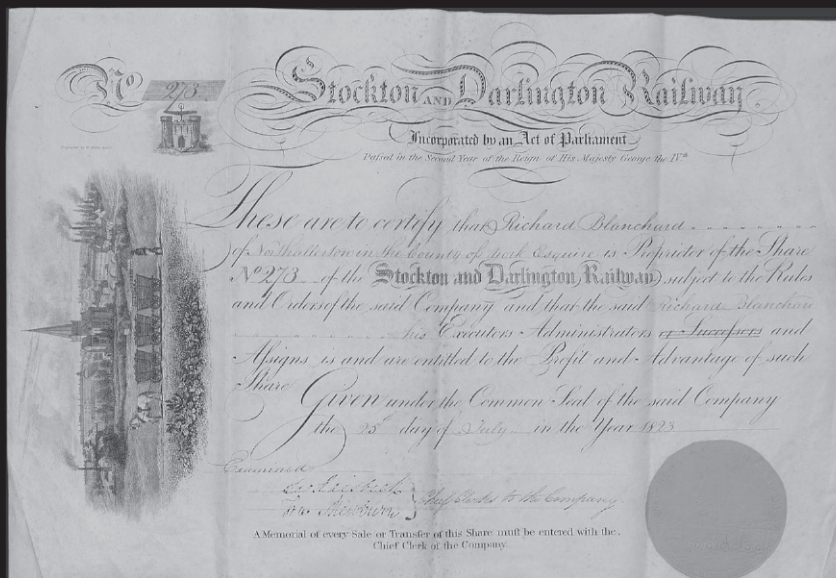 No 273
Stockton AND Darlington Railway.
Incorporated by an Act of Parliament
Passed in the Second Year of the Reign of His Majesty George the IVth
These are to certify that Richard Blanchard
of Northallerton in the County of York Esquire is Proprietor of the Share
No 273 of the Stockton and Darlington Railway subject to the Rules
and Orders of the said Company and that the said Richard Blanchard
his Executors Administrators or Successors and
Assigns is and are entitled to the Profit and Advantage of such
Share
Given under the Common Seal of the said Company
the 25 day of July in the Year 1823
Examined
Chief Clerks to the Company
A Memorial of every Sale or Transfer of this Share must be entered with the
Chief Clerk of the Company